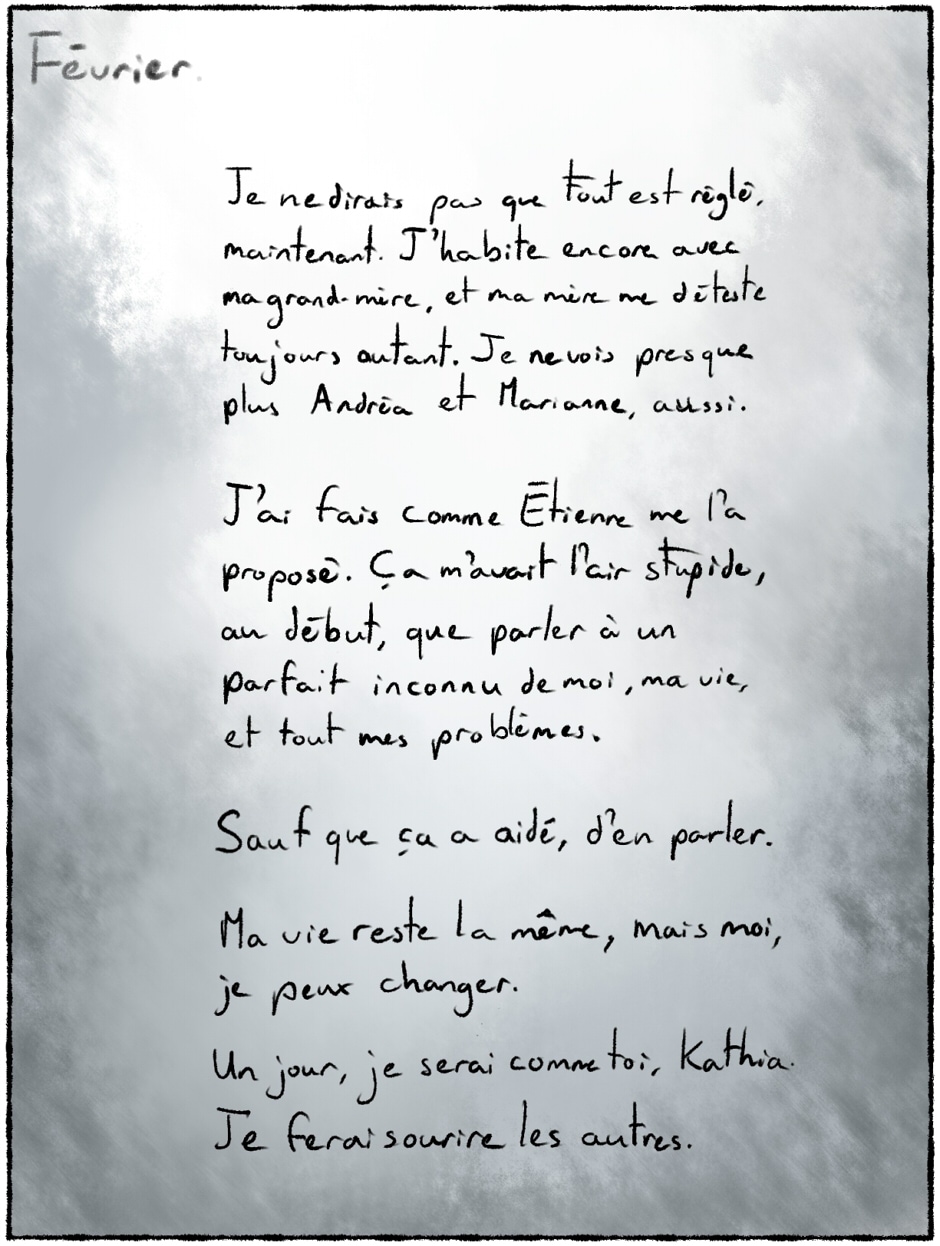 Février.
Je ne dirais pas que tout est réglé,
maintenant. J'habite encore avec
ma grand-mère, et ma mère me déteste
toujours autant. Je ne vois presque
plus Andréa et Marianne, aussi.
J'ai fais comme Étienne me l'a
proposé. Ça m'avait l'air stupide,
au début, que parler à un
parfait inconnu de moi, ma vie,
et tout mes problèmes.
Sauf que ça a aidé, d'en parler.
Ma vie reste la même, mais moi,
je peux changer.
Un jour, je serai comme toi, Kathia.
Je ferai sourire les autres.